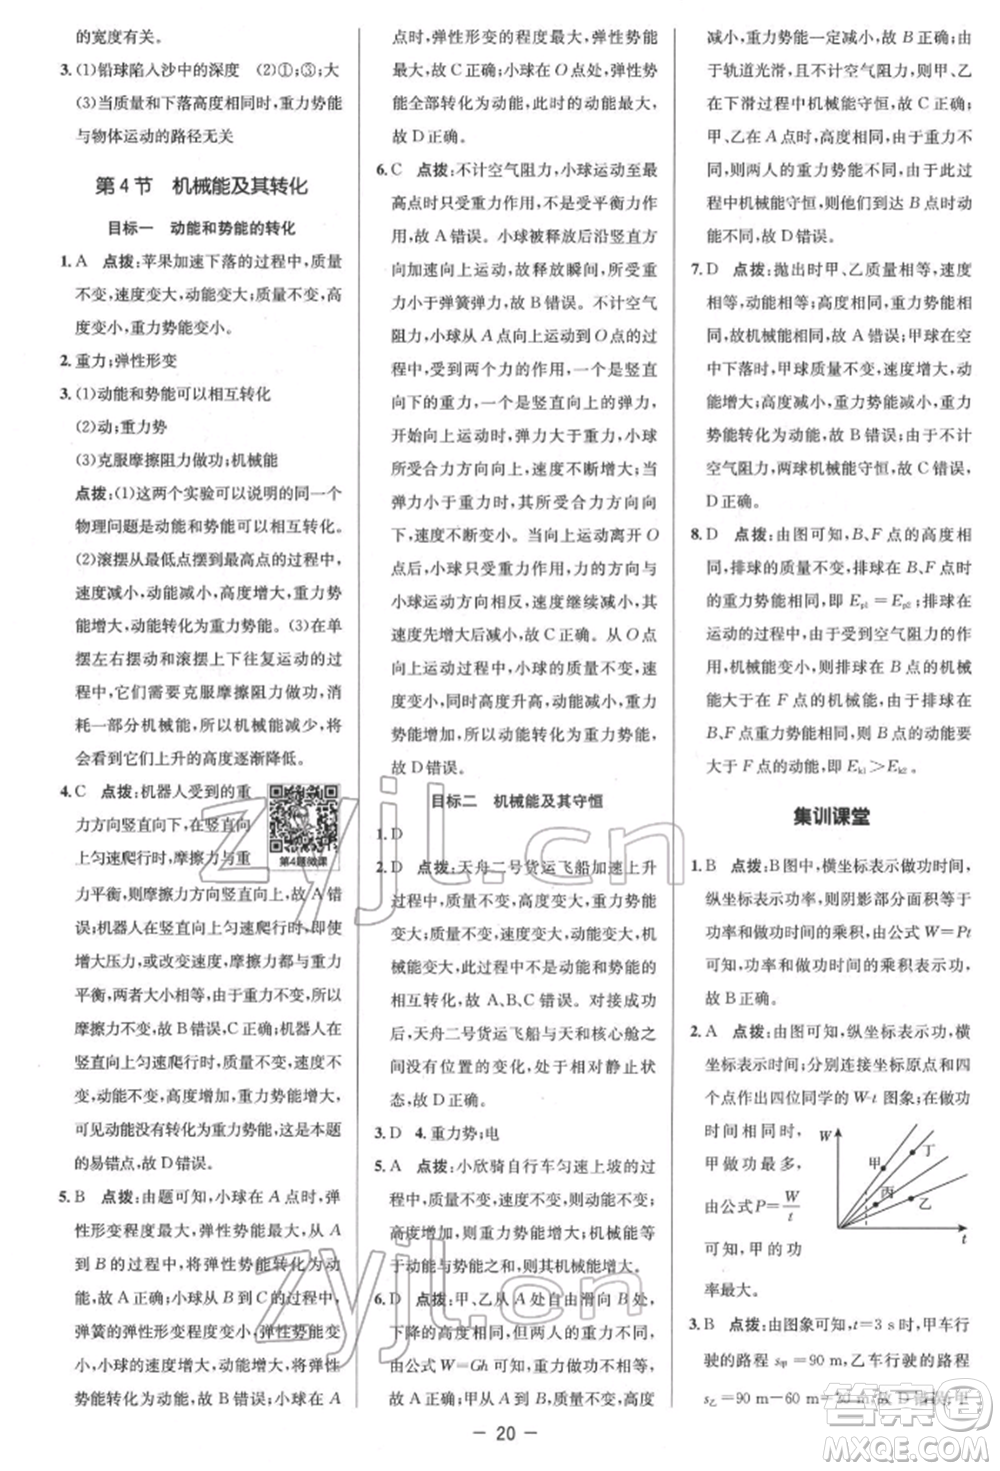 的宽度有关。
3. (1)铅球陷入沙中的深度　(2)①;③;大
(3)当质量和下落高度相同时,重力势能
与物体运动的路径无关
第4节　机械能及其转化
目标一　动能和势能的转化
1. A　点拨:苹果加速下落的过程中,质量
不变,速度变大,动能变大;质量不变,高
度变小,重力势能变小。
2. 重力;弹性形变
3. (1)动能和势能可以相互转化
(2)动;重力势
(3)克服摩擦阻力做功;机械能
点拨:(1)这两个实验可以说明的同一个
物理问题是动能和势能可以相互转化。
(2)滚摆从最低点摆到最高点的过程中,
速度减小,动能减小,高度增加,重力势
能增大,动能转化为重力势能。(3)在单
摆左右摆动和滚摆上下往复运动的过
程中,它们需要克服摩擦阻力做功,消
耗一部分机械能,所以机械能减少,将
会看到它们上升的高度逐渐降低。
4. C　点拨:机器人受到的重
力方向竖直向下,在竖直向
上匀速爬行时,摩擦力与重
第4题微课
力平衡,则摩擦力方向竖直向上,故A错
误;机器人在竖直向上匀速爬行时,即使
增大压力,或改变速度,摩擦力都与重力
平衡,两者大小相等,由于重力不变,所以
摩擦力不变,故B错误,C正确;机器人在
竖直向上匀速爬行时,质量不变,速度不
变,故动能不变,高度变大,重力势能变大,
可见动能没有转化为重力势能,这是本题
的易错点,故D错误。
5. B　点拨:由题可知,小球在A点时,弹
性形变程度最大,弹性势能最大,从A
到B的过程中,将弹性势能转化为动
能,故A正确;小球从B到C的过程中,
弹簧的弹性形变程度变大,弹性势能变
大,小球的速度变小,动能变小,故是动
能转化为弹性势能,故B错误;小球在C
点时,弹性形变的程度最大,弹性势能
最大,故C正确;小球在O点处,弹性势
能全部转化为动能,此时的动能最大,
故D正确。
6. C　点拨:不计空气阻力,小球运动至最
高点时只受重力作用,不是受平衡力作
用,故A错误。小球被释放后沿竖直方
向加速向上运动,故释放瞬间,所受重力
小于弹簧弹力,故B错误。不计空气
阻力,小球从A点向上运动到O点的过
程中,受到两个力的作用,一个是竖直
向下的重力,一个是竖直向上的弹力,
开始向上运动时,弹力大于重力,小球
所受合力向上,速度不断增大;当
弹力小于重力时,其所受合力方向向
下,速度不断变小。当向上运动到O点
时,弹力为零,小球只受重力,力的方向
与小球运动方向相反,速度继续减小,故
速度先增大后减小,故C正确。从O点
到B点过程中,小球的质量不变,速度减
小,同时高度升高,动能减小,重力势
能增加,动能转化为重力势能,
故D错误。
目标二　机械能及其守恒
1. D
2. D　点拨:天舟二号货运飞船加速上升
过程中,质量不变,高度变大,重力势能
变大;质量不变,速度变大,动能变大,机
械能变大;此过程中不是动能和势能的
相互转化,故A、B、C错误。对接成功
后,天舟二号货运飞船与天和核心舱之间
没有位置的变化,处于相对静止状
态,故D正确。
3. D　4. 重力势;电
5. A　点拨:小欣骑自行车匀速上坡的过程
中,质量不变,速度不变,则动能不变;
高度增加,则重力势能增大;机械能等
于动能与势能之和,则其机械能增大。
6. D　点拨:甲、乙从A处自由滑向B处,
下降的高度相同,但两人的重力不同,
由公式W=Gh可知,重力做功不相等,
故A错误;甲从A到B,质量不变,高度
减小,重力势能一定减小,故B错误;
由于轨道光滑,且不计空气阻力,则甲、乙
在下滑过程中机械能守恒,故C错误;
甲、乙在A点时,高度相同,由于重力不
同,则两人的重力势能不同,由于运动
过程中机械能守恒,则他们到达B点时动
能不同,故D正确。
7. D　点拨:抛出时甲、乙质量相等,速度
相等,动能相等;高度相同,重力势能相
同,故机械能相等,故A错误;甲球在空
中下落时,甲球质量不变,速度增大,动
能增大;高度减小,重力势能减小,重力
势能转化为动能,故B、C错误;不计空
气阻力,两球机械能守恒,故C错误,
D正确。
8. D　点拨:由图可知,B、F点的高度相
同,排球的质量不变,所以B、F两点的
重力势能相同,即Ep1=Ep2;排球在
运动的过程中,由于受到空气阻力的作
用,机械能变小,所以排球B点的机械
能大于在F点的机械能,由于排球在
B、F点的重力势能相等,故B点的动能要
大于F点的动能,即Ek1>Ek2。
集训课堂
1. B　点拨:B图中,横坐标表示做功时间,
纵坐标表示功率,则阴影部分面积等于
功率和做功时间的乘积,由公式W=Pt
可知,功率和做功时间的乘积表示功,
故B正确。
2. A　点拨:由图可知,纵坐标表示功,横
坐标表示时间;分别连接坐标原点和四
个点作出四位同学的W-t图象;在做功
时间相同时,
甲做功最多,
由公式P=W/t
可知,甲的功
率最大。
W
甲
丁
丙
乙
t
3. B　点拨:由图象可知,t=3 s时,甲车行
驶的路程s甲=90 m,乙车行驶的路程
s乙=90 m-60 m=30 m,故D错误;甲
— 20 —
zyjl.cn
zyjl.cn
答案圈
MXQE.COM